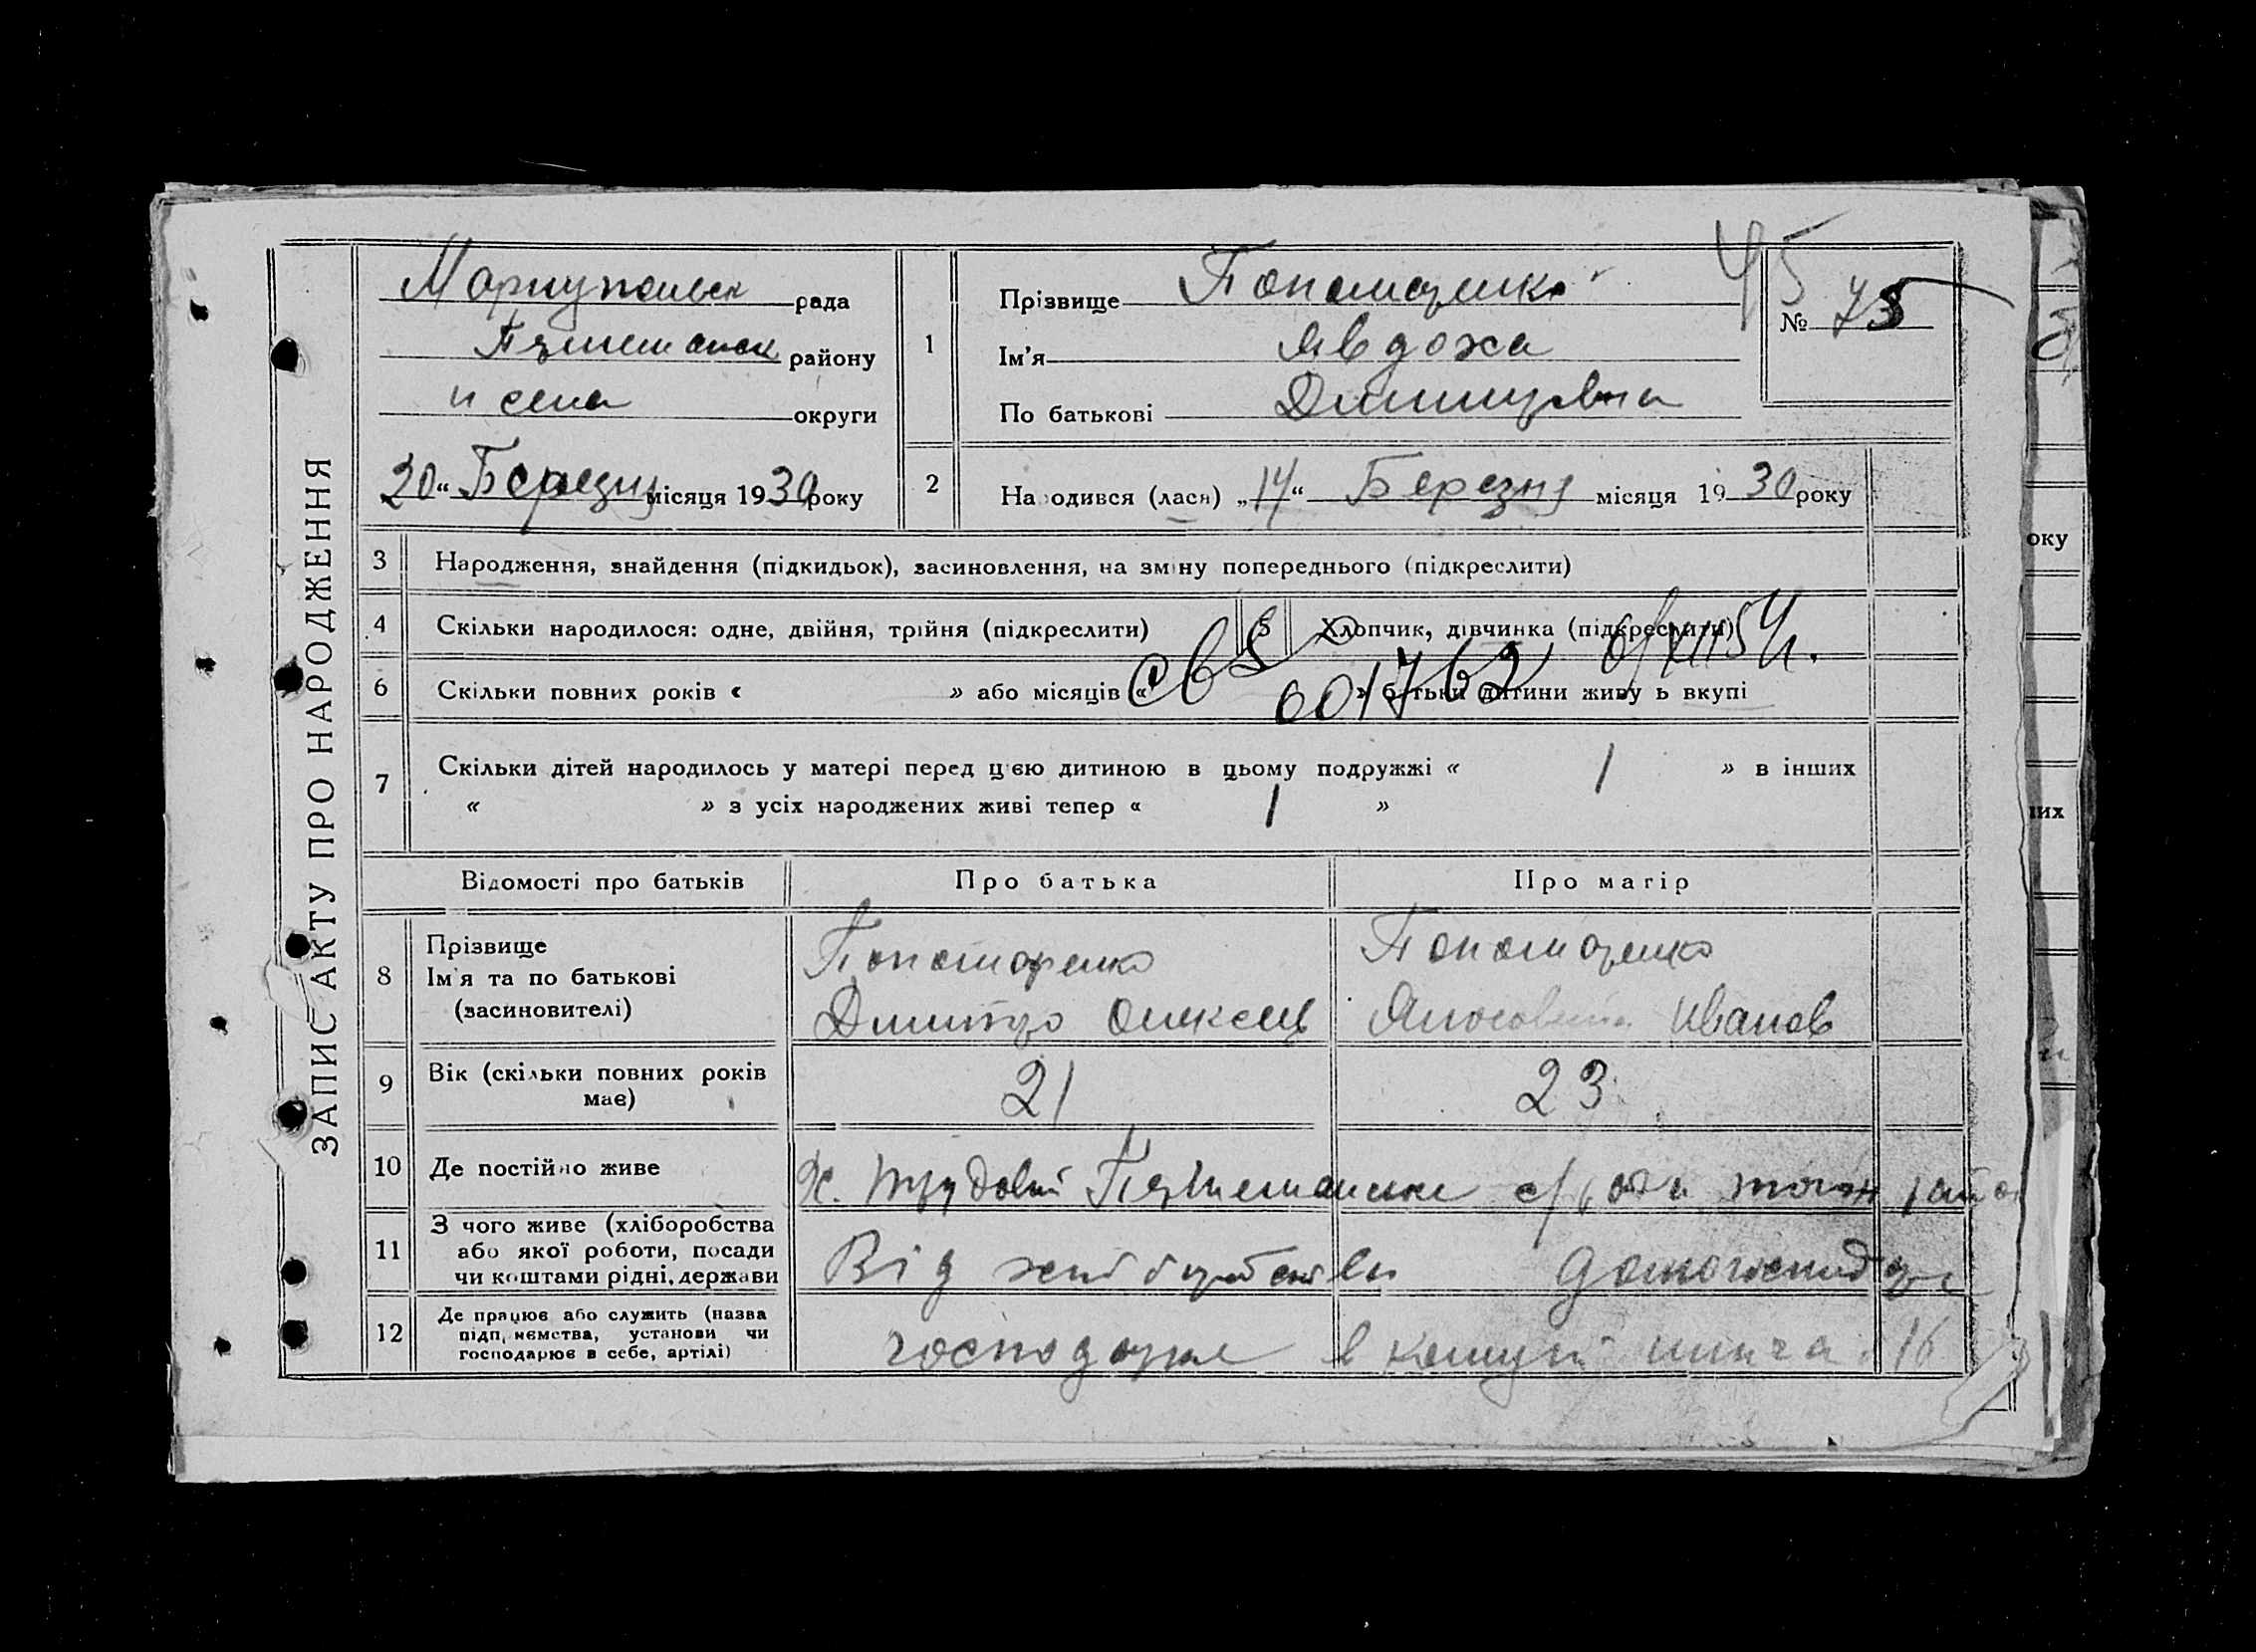 ЗАПИС АКТУ ПРО НАРОДЖЕННЯ
рада
району
и села округи
20 “ Березня місяця 1930 року
1
Прізвище Пономаренко
Ім’я Явдоха
По батькові Дмитровна
45
№ 75
2 Народився (лася) „14“ Березня місяця 1930 року
3 Народження, знайдення (підкидьок), засиновлення, на зміну попереднього (підкреслити)
4 Скільки народилося: одне, двійня, трійня (підкреслити) 5 Хлопчик, дівчинка (підкреслити)
6 Скільки повних років « » або місяців « » батьки дитини живуть вкупі
001762
7 Скільки дітей народилось у матері перед цією дитиною в цьому подружжі « 1 » в інших
« » з усіх народжених живі тепер « 1 »
Відомості про батьків Про батька Про матір
8 Прізвище
Ім’я та по батькові
(засиновителі)
Пономаренко
Дмитро Олексеев
Пономаренко
Иванов
9 Вік (скільки повних років має) 21 23
10 Де постійно живе Х. Трудовий с/ради
11 З чого живе (хліборобства
або якої роботи, посади
чи коштами рідні, держави
Від хліборобства
12 Де працює або служить (назва
підприємства, установи чи
господарює в себе, артілі)
господарює в
16
оку
них